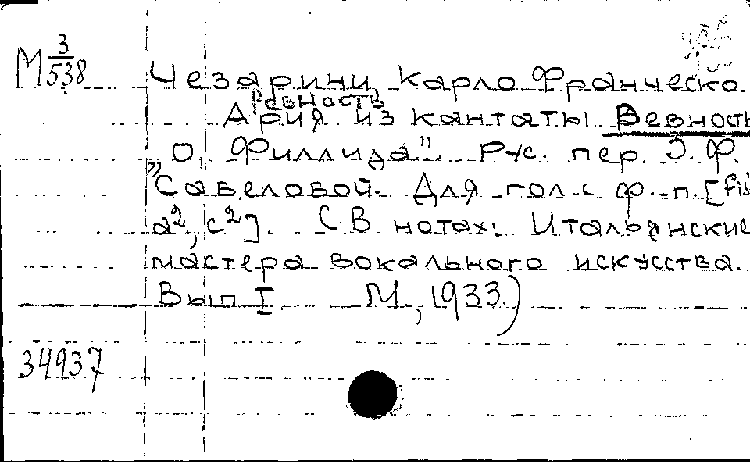 М 3/538
Чезарини, Карло Франческо.
Ревность
Ария из кантаты Вевность
„О, Филлида". Рус. пер. Э. Ф.
Савеловой. Для гол. с ф.-п. [fis
a², c²]. (В нотах: Итальянские
мастера вокального искусства.
Вып I. М., 1933)
34937